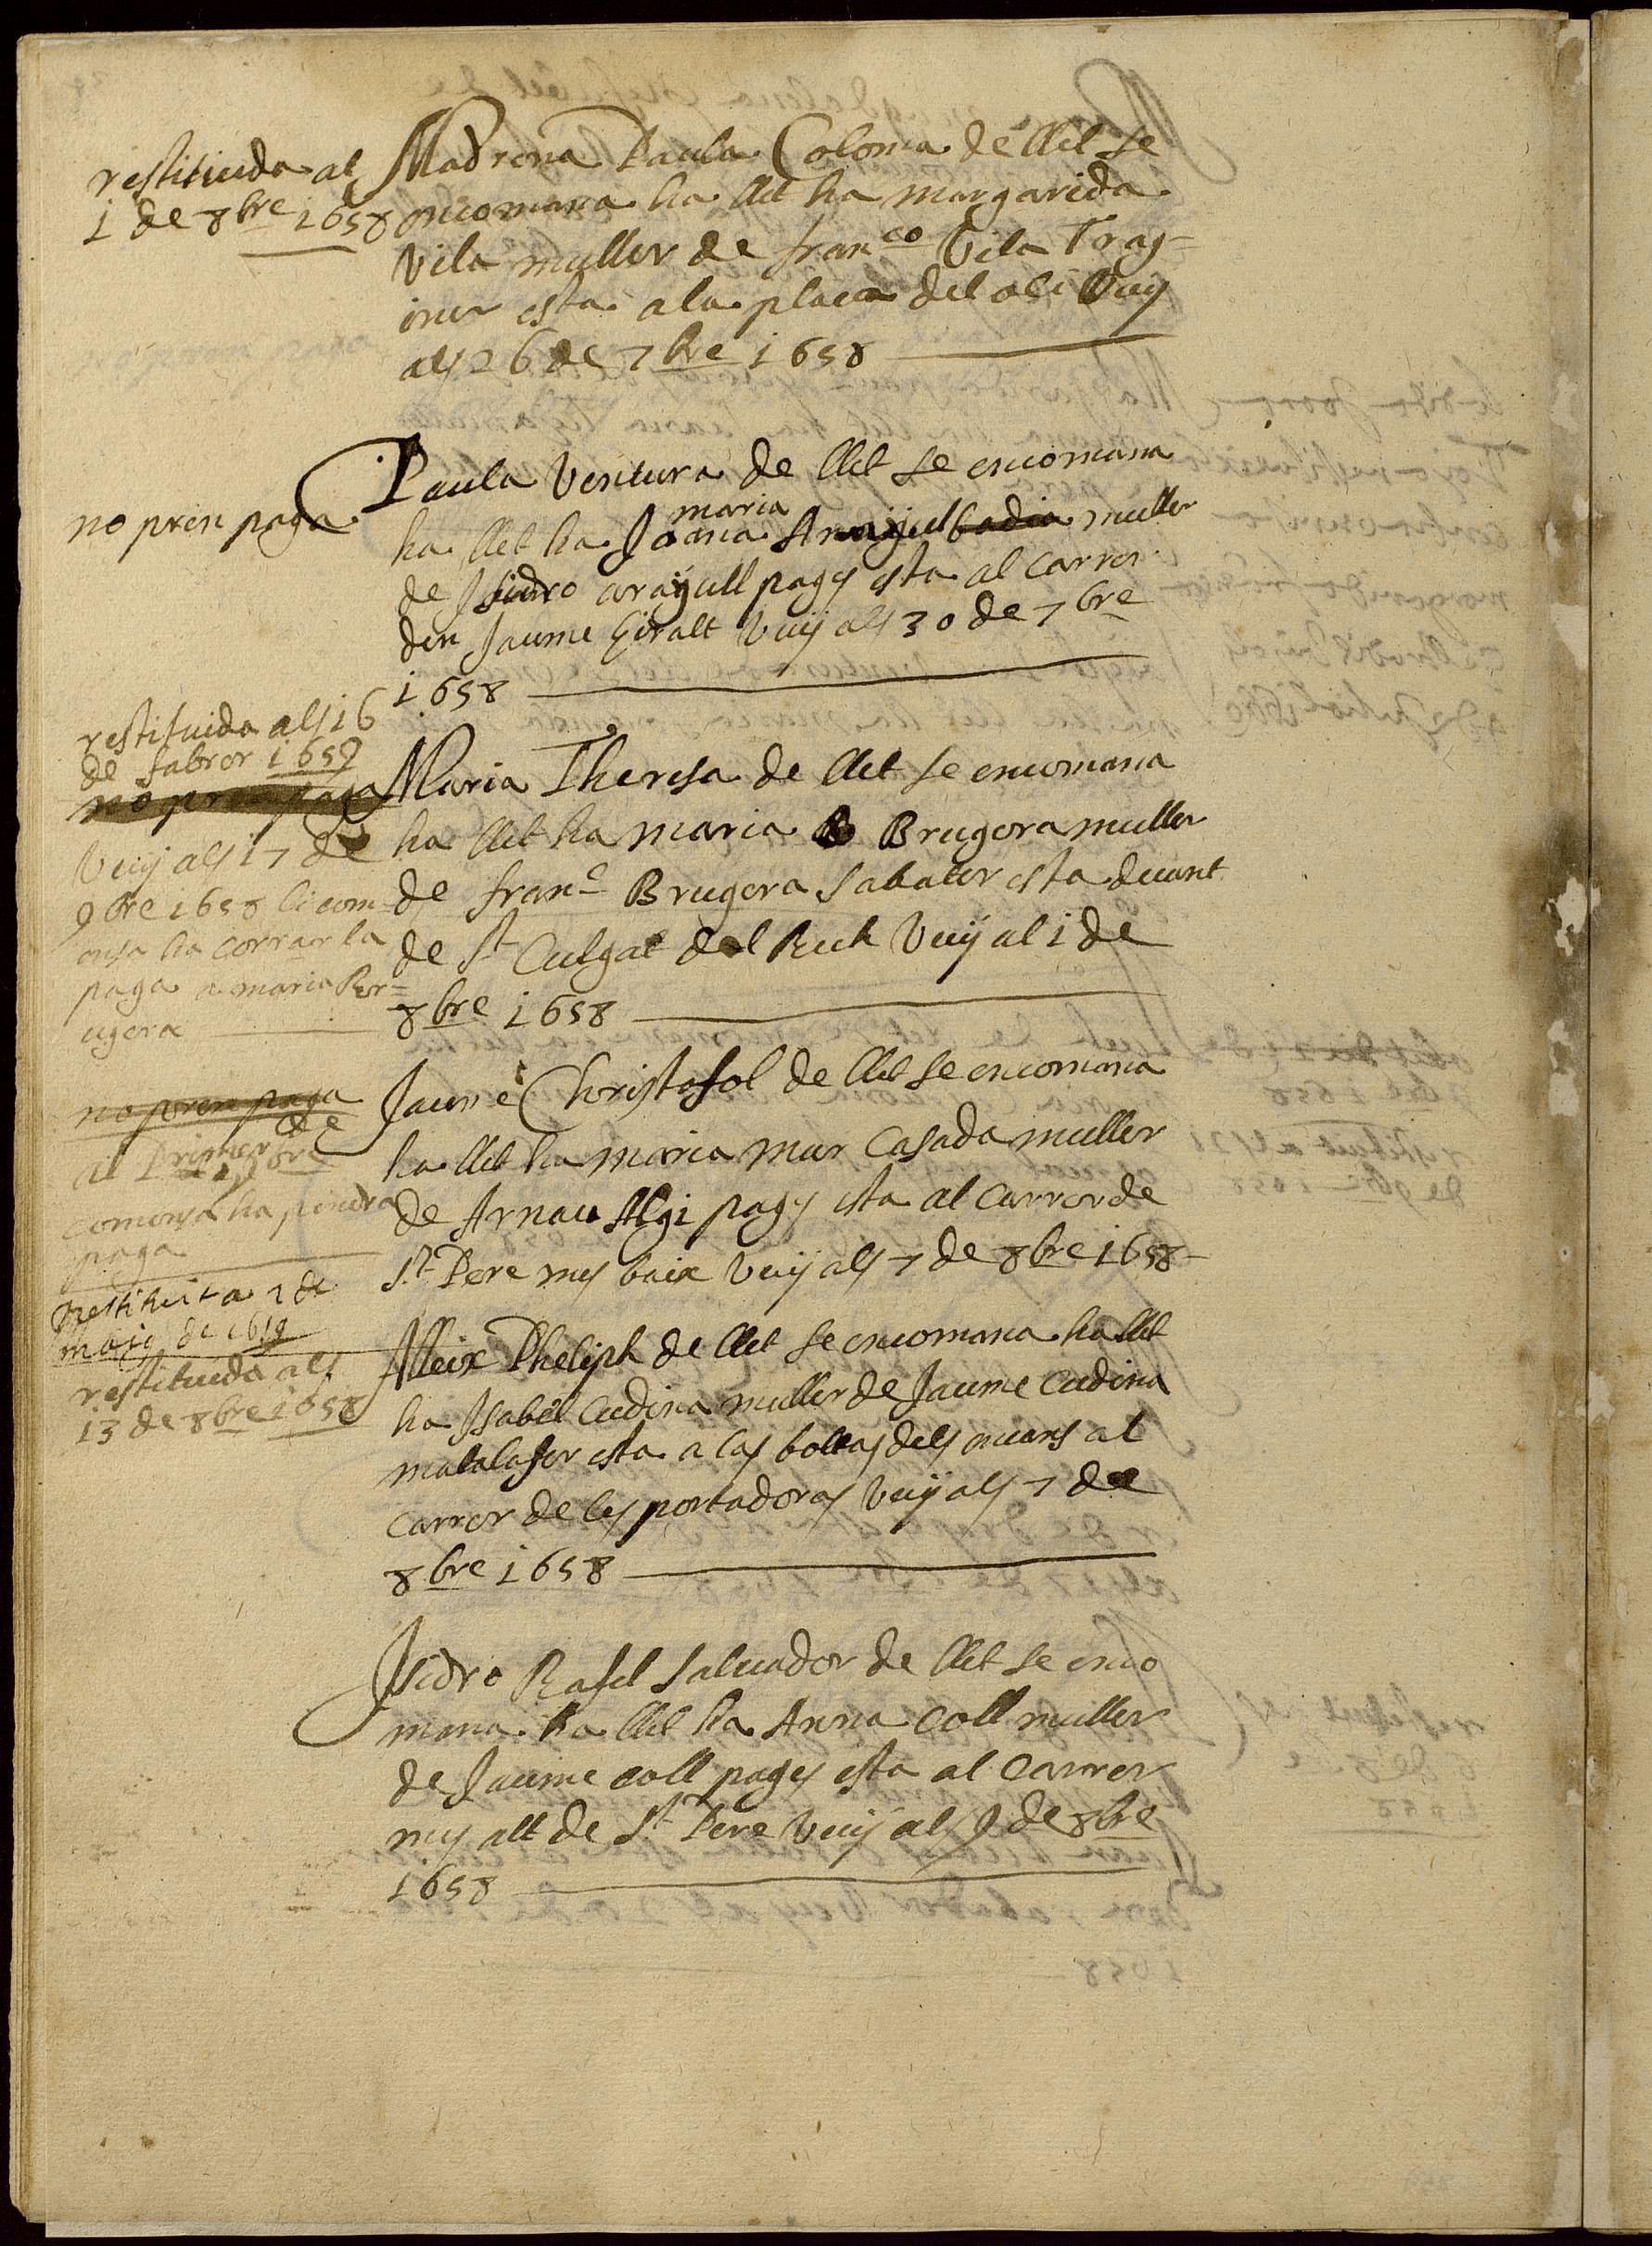 restituida als
1 de 8bre 1658
Madrona Paula Coloma de llet se
encomana ha llet ha margarida
Vila muller de franco Vila Trag=
iner esta a la plaça del oli Vuÿ
als 26 de 7bre 1658
no pren paga
Paula Ventura de llet se encomana
maria
ha llet ha Joana Arajull badia muller
de Isidro arajull pages esta al Carrer
den Jaume Giralt Vuÿ als 30 de 7bre
1658
restituida als 16
de fabrer 1659
no pren paga
Vuÿ als 17 de
9bre 1658 li com=
ensa ha corrar la
paga a maria Bor=
ugera
Maria Theresa de llet se encomana
ha llet ha maria Brugera muller
de franc Brugera Sabater esta deuant
de St Culgat del Rech Vuÿ al 1 de
8bre 1658
no pren paga
al Primer de
9bre
comensa ha pendra
paga
Restituit a 2 de
Maig de 1659
Jaume Christofol de llet se encomana
ha llet ha maria mur Casada muller
de Arnau Algi pages esta al Carrer de
St Pere mes baix Vuÿ als 7 de 8bre 1658
restituida als
13 de 8bre 1658
Aleix Pheliph de llet se encomana ha llet
ha Isabel Cudina muller de Jaume Cudina
matalafer esta a las boltas dels encans al
Carrer de les portadoras Vuÿ als 7 de
8bre 1658
Isidro Rafel Saluador de llet se enco
mana ha llet ha Anna Coll muller
de Jaume coll pages esta al Carrer
mes alt de St Pere Vuÿ als 9 de 8bre
1658